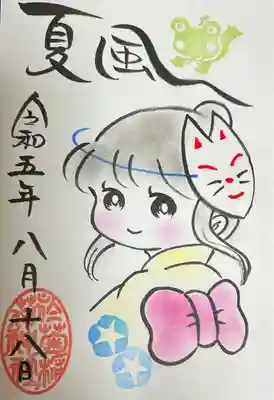 夏風
令和五年 八月 十八日